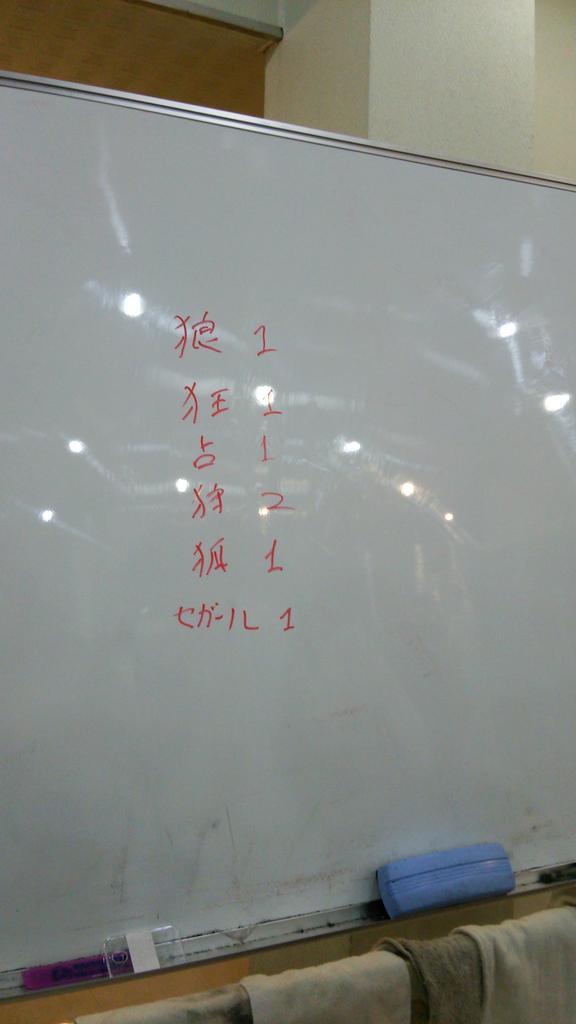 狼 1
狂 1
占 1
狩 2
狐 1
セガール 1